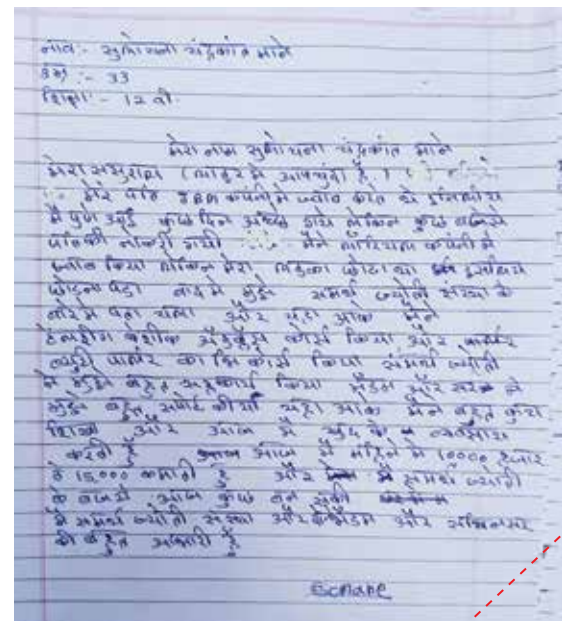 नाव :- सुलोचना चंद्रकांत माने
उम्र :- 33
शिक्षा :- 12 वी
मेरा नाम सुलोचना चंद्रकांत माने
मेरा ससुराल लातूर में है
मेरे पति IBM कंपनी में जॉब करते थे इसलिये
मै पुणे आई कुछ दिन अच्छे गये लेकिन कुछ वजहसे
पतिकी नोकरी गयी मैने कंपनी मे
जॉब किया लेकिन मेरा लडका छोटा था इसलिये
छोडना पडा बाद मे मुझे समर्थ ज्योती संस्था के
बारे मे पता चला और यहा आके मैने
बेसीक अॅडव्हान्स कोर्स किया और पार्लर
ब्युटी पार्लर का भि कोर्स किया समर्थ ज्योती
ने मुझे बहुत सहकार्य किया मॅडम और सर ने
मुझे बहुत सपोर्ट कीया यहा आके मैने बहुत कुछ
शिखा और आज मै खुद के व्यवसाय
करती हूँ आज मै महिने मे 10000 हजार
ते 15,000 कमाती हूँ और मै समर्थ ज्योती
के वजसे आज कुछ बन सुकी
मै समर्थ ज्योती संस्था और मॅडम और
की बहुत आभारी हूँ
Scmane